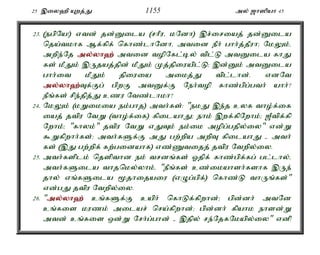 25 இலைஹி யுறத்து 1155 அல் ஜாஸியா 45
23. (நபியே!) எவன் தன்னுடைய (சரீர, மனோ) இச்சையைத் தன்னுடைய
தெய்வமாக ஆக்கிக் கொண்டானோ, அவனை நீர் பார்த்தீரா; மேலும்,
அறிந்தே அல்லாஹ் அவனை வழிகேட்டில் விட்டு அவனுடைய காது
கள் மீதும் இருதயத்தின் மீதும் முத்திரையிட்டு; இன்னும் அவனுடைய
பார்வை மீதும் திரையை அமைத்து விட்டான். எனவே
அல்லாஹ்வுக்குப் பிறகு அவனுக்கு நேர்வழி காண்பிப்பவர் யார்?
நீங்கள் சிந்தித்து உணர வேண்டாமா?
24. மேலும் (மறுமையை நம்பாத) அவர்கள்: "நமது இந்த உலக வாழ்க்கை
யைத் தவிர வேறு (வாழ்க்கை) கிடையாது; நாம் இறக்கிறோம்; ஜீவிக்கி
றோம்; "காலம்" தவிர வேறு எதுவும் நம்மை அழிப்பதில்லை" என்று
கூறுகிறார்கள்; அவர்களுக்கு அது பற்றிய அறிவு கிடையாது - அவர்
கள் (இது பற்றிக் கற்பனையாக) எண்ணுவதைத் தவிர வேறில்லை.
25. அவர்களிடம் தெளிவான நம் வசனங்கள் ஓதிக் காண்பிக்கப் பட்டால்,
அவர்களுடைய வாதமெல்லாம், "நீங்கள் உண்மையாளர்களாக இருந்
தால் எங்களுடைய மூதாதையரை (எழுப்பிக்) கொண்டு வாருங்கள்"
என்பது தவிர வேறில்லை.
26. "அல்லாஹ் உங்களுக்கு உயிர் கொடுக்கிறான்; பின்னர் அவனே
உங்களை மரணம் அடையச் செய்கிறான்; பின்னர் கியாம நாளன்று
அவன் உங்களை ஒன்று சேர்ப்பான் - இதில் சந்தேகமேயில்லை" எனி